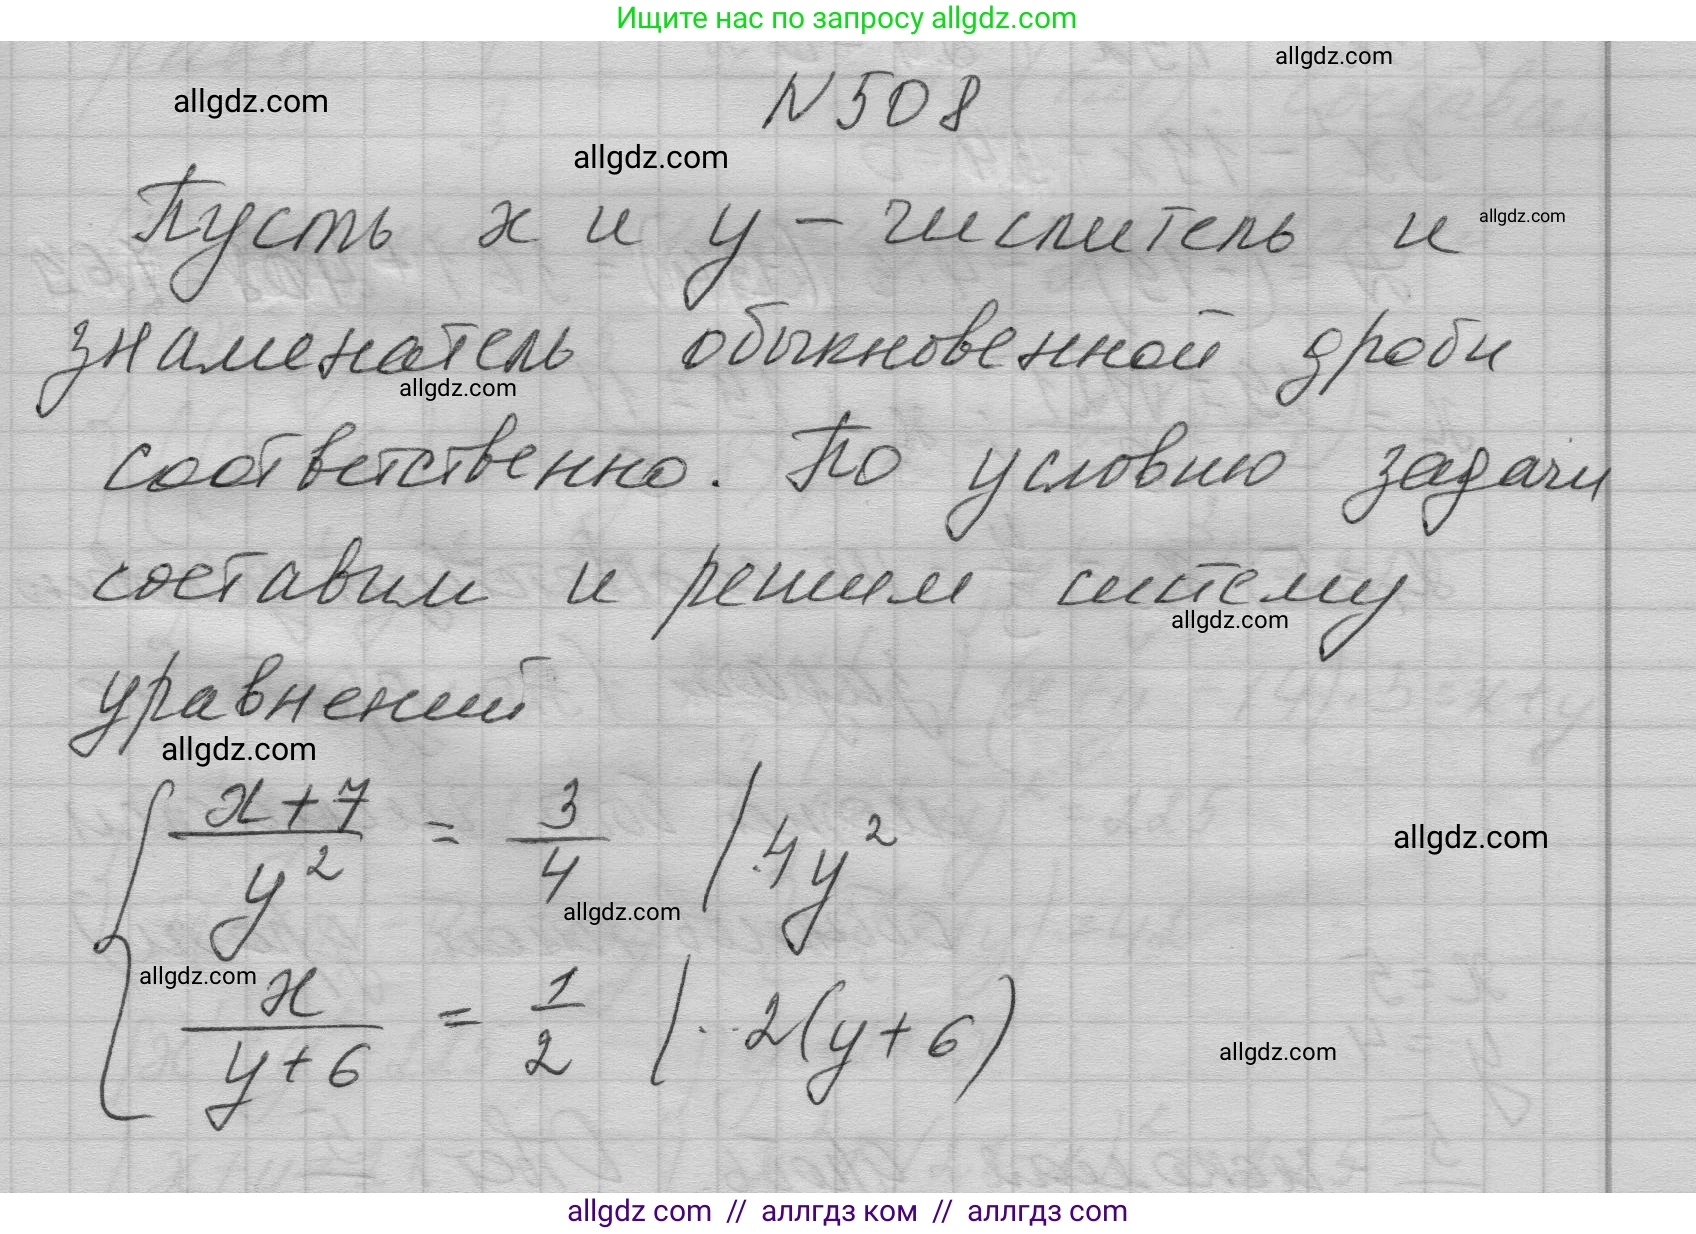 Ищите нас по запросу allgdz.com
allgdz.com
allgdz.com
N 508
allgdz.com
Пусть x и y – числитель и
allgdz.com
знаменатель обыкновенной дроби
allgdz.com
соответственно. По условию задачи
составим и решим систему
allgdz.com
уравнений
allgdz.com
{ (x+7)/y² = 3/4 | · 4y²
allgdz.com
allgdz.com
allgdz.com
x/(y+6) = 1/2 | · 2(y+6)
allgdz.com
allgdz com // аллгдз ком // аллгдз com